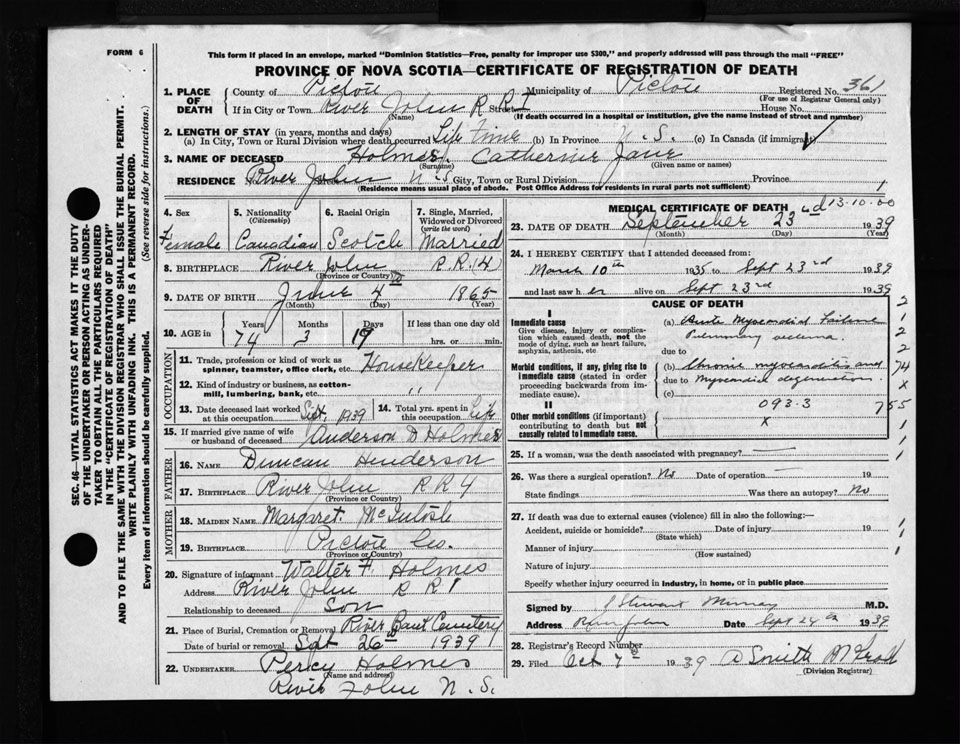 FORM 6
This form if placed in an envelope, marked "Dominion Statistics—Free, penalty for improper use $300," and properly addressed will pass through the mail "FREE"
PROVINCE OF NOVA SCOTIA—CERTIFICATE OF REGISTRATION OF DEATH
1. PLACE OF DEATH
County of Pictou Municipality of Pictou Registered No. 361
(For use of Registrar General only)
If in City or Town River John R R 1 Street House No.
(Name) (If death occurred in a hospital or institution, give the name instead of street and number)
2. LENGTH OF STAY (in years, months and days)
(a) In City, Town or Rural Division where death occurred Life Time (b) In Province N. S. (c) In Canada (if immigrant) ✓
3. NAME OF DECEASED Holmes, Catherine Jane
(Surname) (Given name or names)
RESIDENCE No. River John N. S. City, Town or Rural Division Province
(Residence means usual place of abode. Post Office Address for residents in rural parts not sufficient) 1
4. Sex Female
5. Nationality (Citizenship) Canadian
6. Racial Origin Scotch
7. Single, Married, Widowed or Divorced (write the word) Married
8. BIRTHPLACE River John R. R. (4)
(Province or Country)
9. DATE OF BIRTH June 4th 1865
(Month) (Day) (Year)
10. AGE in Years 74 Months 3 Days 19 If less than one day old hrs. or min.
OCCUPATION
11. Trade, profession or kind of work as spinner, teamster, office clerk, etc. Housekeeper
12. Kind of industry or business, as cotton-mill, lumbering, bank, etc. "
13. Date deceased last worked at this occupation Sept. 1939 14. Total yrs. spent in this occupation Life
15. If married give name of wife or husband of deceased Anderson D Holmes
FATHER
16. NAME Duncan Henderson
17. BIRTHPLACE River John R R 4
(Province or Country)
MOTHER
18. MAIDEN NAME Margaret McIntosh
19. BIRTHPLACE Pictou Co.
(Province or Country)
20. Signature of informant Walter F. Holmes
Address River John R R 1
Relationship to deceased Son
21. Place of Burial, Cremation or Removal River Bank Cemetery
Date of burial or removal Sept 26th 1939
22. UNDERTAKER Percy Holmes
(Name and address)
River John N. S.
MEDICAL CERTIFICATE OF DEATH 13-10-00
23. DATE OF DEATH September 23rd 1939
(Month) (Day) (Year)
24. I HEREBY CERTIFY that I attended deceased from:
March 10th 1935 to Sept 23rd 1939
and last saw her alive on Sept 23rd 1939
CAUSE OF DEATH
I
Immediate cause
Give disease, injury or complication which caused death, not the mode of dying, such as heart failure, asphyxia, asthenia, etc
(a) Acute Myocardial Failure
Pulmonary oedema
due to
Morbid conditions, if any, giving rise to immediate cause (stated in order proceeding backwards from immediate cause).
(b) Chronic myocarditis and
due to Myocardial degeneration.
(c)
II
Other morbid conditions (if important) contributing to death but not causally related to immediate cause.
093.3
x
2
1
2
2
74
x
755
1
1
25. If a woman, was the death associated with pregnancy? —
26. Was there a surgical operation? No Date of operation — 19
State findings Was there an autopsy? No
27. If death was due to external causes (violence) fill in also the following:—
Accident, suicide or homicide? Date of injury 19
(State which)
Manner of injury
(How sustained)
Nature of injury
Specify whether injury occurred in industry, in home, or in public place
Signed by J Stewart Murray M.D.
Address River John Date Sept 24th 1939
28. Registrar's Record Number 8
29. Filed Oct 7 1939 A Smith
(Division Registrar)
SEC. 46—VITAL STATISTICS ACT MAKES IT THE DUTY OF THE UNDERTAKER OR PERSON ACTING AS UNDERTAKER TO OBTAIN ALL THE PARTICULARS REQUIRED IN THE "CERTIFICATE OF REGISTRATION OF DEATH"
AND TO FILE THE SAME WITH THE DIVISION REGISTRAR WHO SHALL ISSUE THE BURIAL PERMIT.
WRITE PLAINLY WITH UNFADING INK. THIS IS A PERMANENT RECORD.
Every item of information should be carefully supplied. (See reverse side for instructions.)